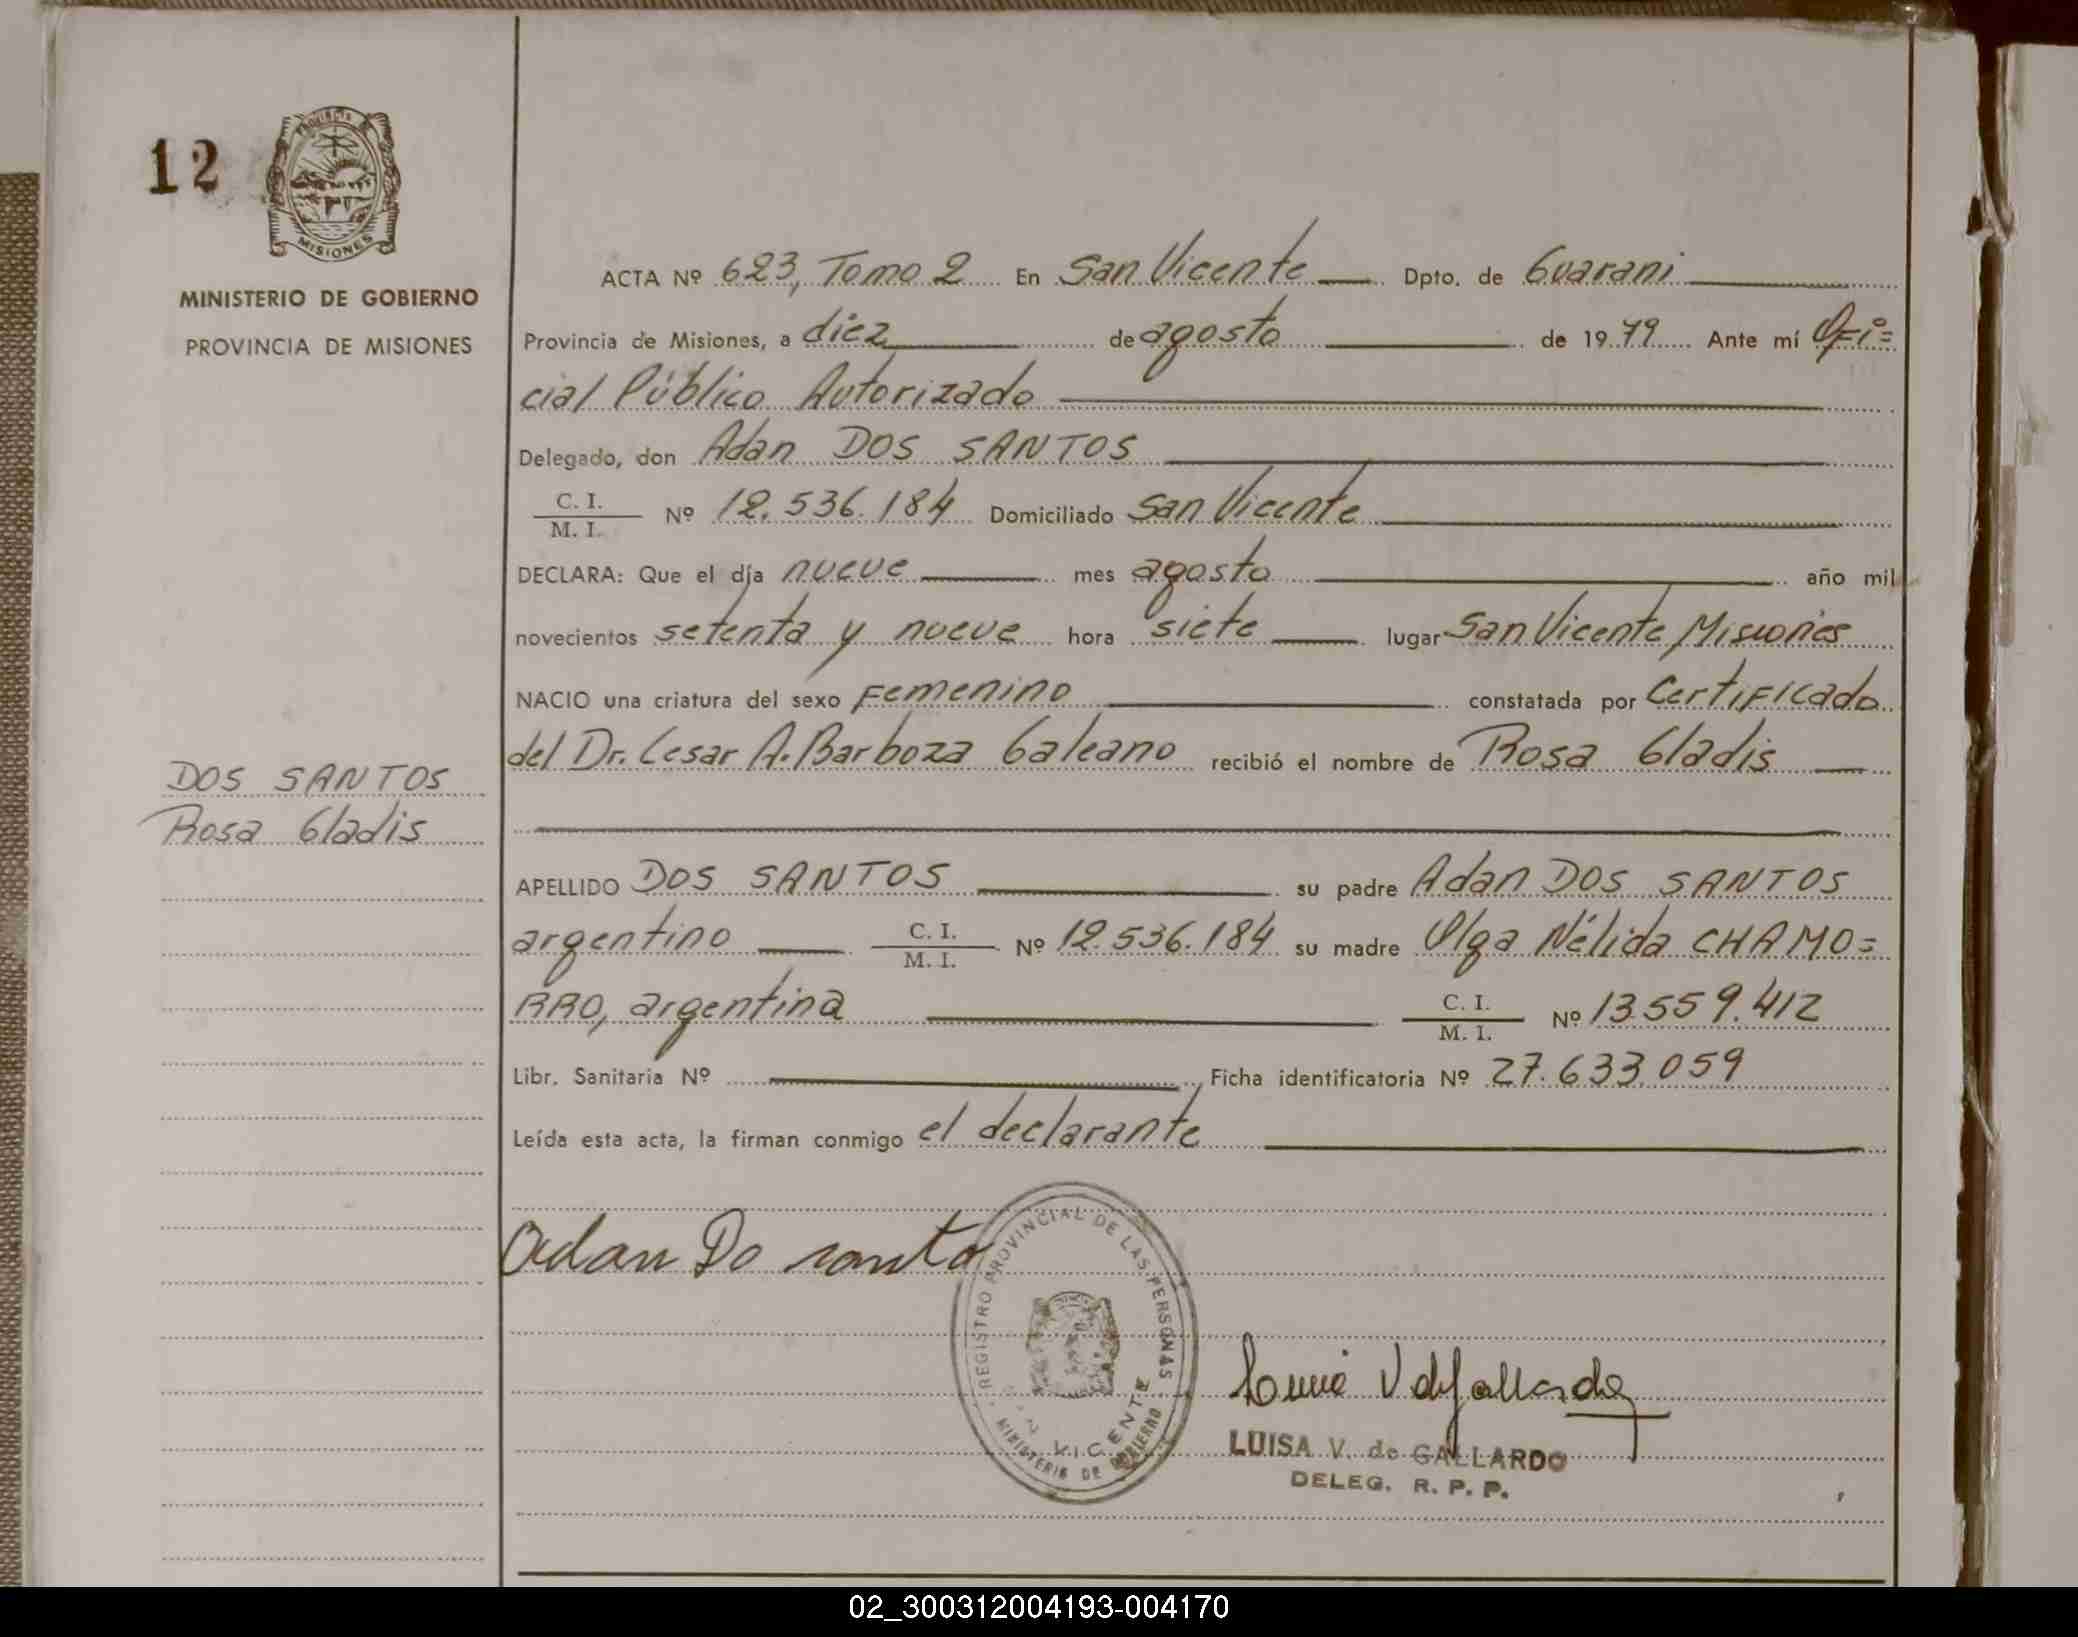 12
PROVINCIA DE
MISIONES
MINISTERIO DE GOBIERNO
PROVINCIA DE MISIONES
DOS SANTOS
Rosa Gladis
ACTA Nº 623, Tomo 2 En San Vicente Dpto. de Guarani
Provincia de Misiones, a diez de agosto de 1979 Ante mí Ofi=
cial Público Autorizado
Delegado, don Adan DOS SANTOS
C. I.
M. I. Nº 12.536.184 Domiciliado San Vicente
DECLARA: Que el día nueve mes agosto año mil
novecientos setenta y nueve hora siete lugar San Vicente Misiones
NACIO una criatura del sexo Femenino constatada por Certificado
del Dr. Cesar A. Barboza Galeano recibió el nombre de Rosa Gladis
APELLIDO DOS SANTOS su padre Adan DOS SANTOS
argentino C. I. M. I. Nº 12.536.184 su madre Olga Nélida CHAMO=
RRO, argentina C. I. M. I. Nº 13.559.412
Libr. Sanitaria Nº Ficha identificatoria Nº 27.633.059
Leída esta acta, la firman conmigo el declarante
Adan Do santo
REGISTRO PROVINCIAL DE LAS PERSONAS
VICENTE
MINISTERIO DE GOBIERNO
LUISA V. de GALLARDO
DELEG. R. P. P.
02_300312004193-004170